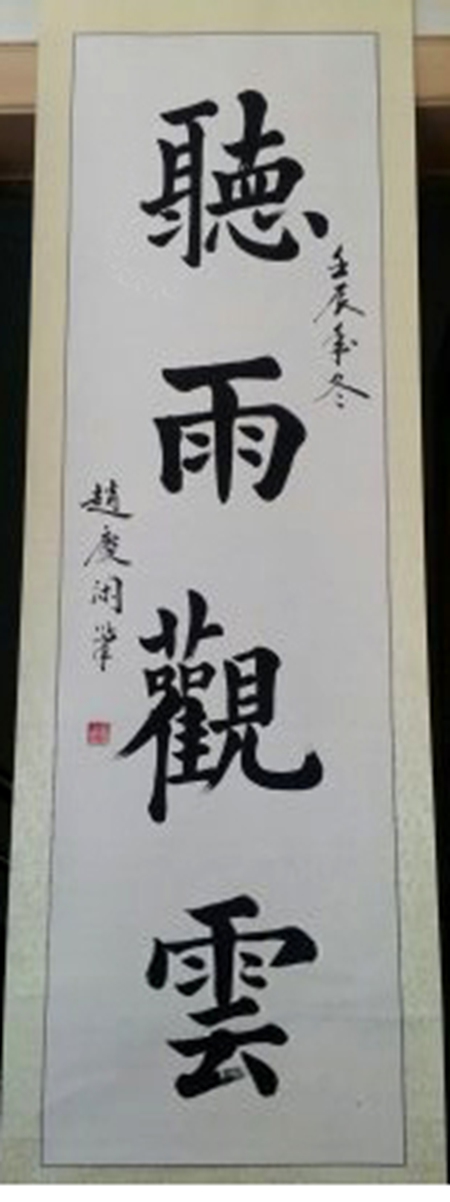 聽雨觀雲
壬辰年冬
趙慶閑筆